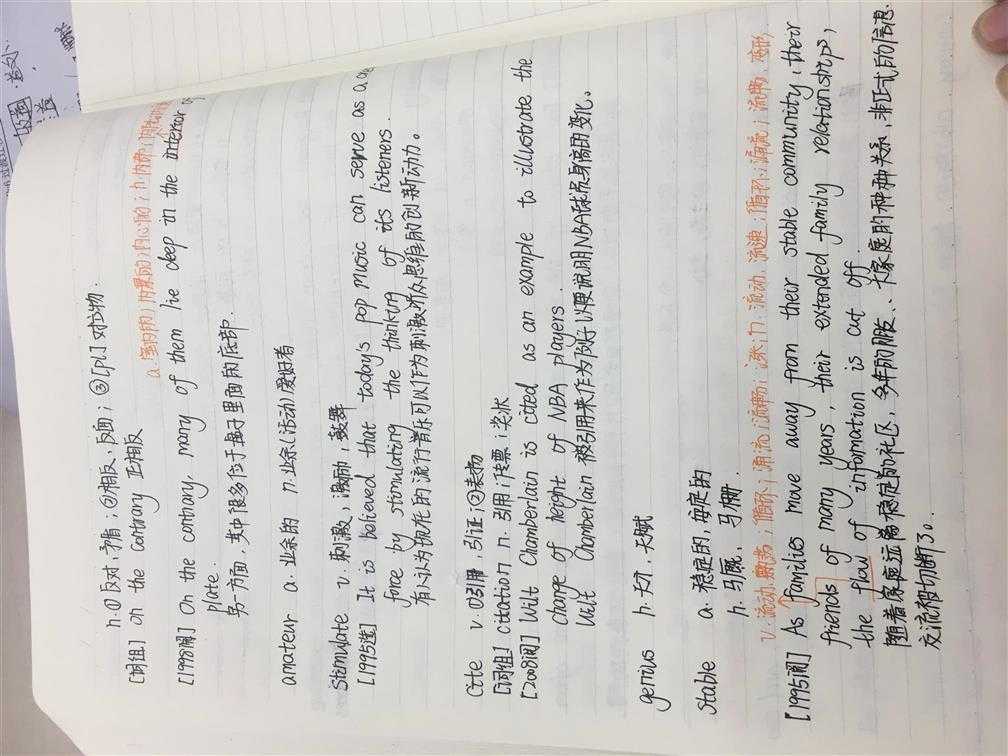 n.①反对,矛盾;②相反、反面;③[pl.]对立物.
[词组] on the contrary 正相反
a.室内的;内景的;内心的;n.内部;
[1998阅] On the contrary, many of them lie deep in the interior of
plate.
另一方面,其中很多位于盘子里面的底部.
amateur a. 业余的 n.业余(活动)爱好者
stimulate v. 刺激,激励,鼓舞
[1995选] It is believed that today's pop music can serve as a cre
force by stimulating the thinking of its listeners.
有人认为现在的流行音乐可以作为刺激听众思维的创新动力。
cite v.①引用,引证;②表扬
[词组] citation n. 引用;传票;
[2008阅] Wilt Chamberlain is cited as an example to illustrate the
change of height of NBA players.
Wilt Chamberlain 被引用来作为例子以便说明NBA球员身高的变化。
genius n. 天才,天赋
stable a. 稳定的,安定的
n. 马厩,马棚.
v.流动,飘荡;循环;涌流;流畅;n.流动,流速;循环;涌流;流畅,
[1995阅] As families move away from their stable community, their
friends of many years, their extended family relationships,
the flow of information is cut off.
随着家庭远离稳定的社区,多年的朋友、大家庭的种种关系,非正式的信息
交流被切断了。